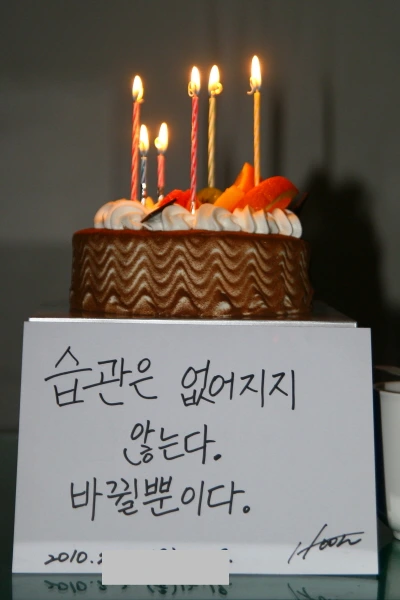 습관은 없어지지
않는다.
바뀔뿐이다.
2010.2